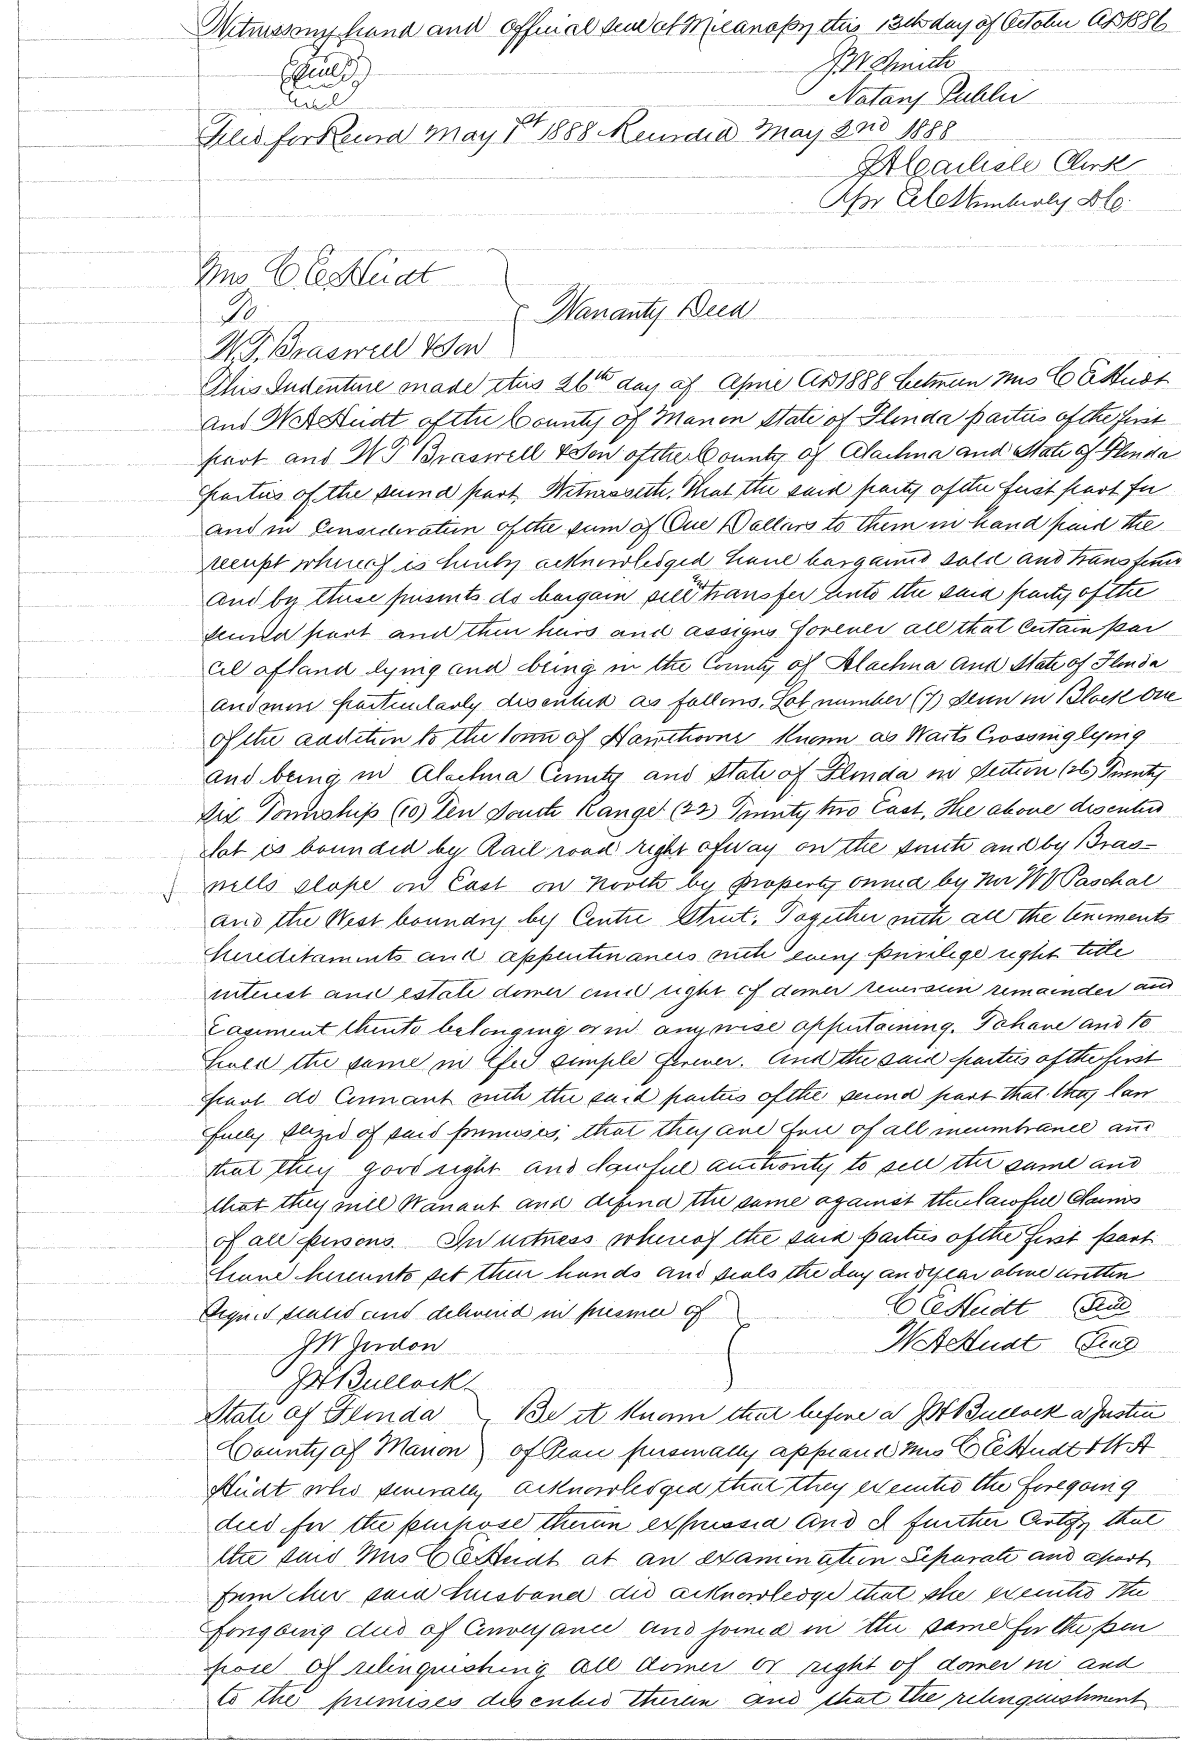 Witness my hand and official seal at Micanopy this 13th day of October AD 1886
J W Smith
(Seal)
Notary Public
seal
Filed for Record May 1st 1888 Recorded May 2nd 1888
J A Carlisle Clerk
Per D.C.
Mrs C E Heidt
To
Warranty Deed
W. J. Braswell & Son
This Indenture made this 26th day of April AD 1888 between Mrs C E Heidt
and W A Heidt of the County of Marion State of Florida parties of the first
part and W J Braswell & Son of the County of Alachua and State of Florida
parties of the second part, Witnesseth, That the said party of the first part for
and in Consideration of the sum of One Dollars to them in hand paid the
receipt whereof is hereby acknowledged have bargained sold and transferred
and by these presents do bargain sell & transfer unto the said party of the
second part and their heirs and assigns forever all that certain par
cel of land lying and being in the County of Alachua and State of Florida
and more particularly described as follows, Lot number (7) Seven in Block one
of the addition to the town of Hawthorne known as Waits Crossing lying
and being in Alachua County and State of Florida in Section (26) Twenty
six Township (10) Ten South Range (22) Twenty two East, The above described
lot is bounded by Rail road right of way on the south and by Bras-
wells slope on East on North by property owned by Mr W J Paschal
and the West boundry by Centre Street, Together with all the tenements
hereditaments and appurtenances with every privilege right title
interest and estate dower and right of dower reversion remainder and
Easement thereto belonging or in anywise appertaining. To have and to
hold the same in fee simple forever. And the said parties of the first
part do Covenant with the said parties of the second part that they law
fully siezed of said premises; that they are free of all incumbrance and
that they good right and lawful authority to sell the same and
that they will Warrant and defend the same against the lawful claims
of all persons. In witness whereof the said parties of the first part
have hereunto set their hands and seals the day and year above written
Signed sealed and delivered in presence of
C E Heidt (Seal)
J W Jordon
W A Heidt (Seal)
J H Bullock
State of Florida Be it known that before a J H Bullock a Justice
County of Marion of Peace personally appeared Mrs C E Heidt & W A
Heidt who severally acknowledged that they executed the foregoing
deed for the purpose therein expressed and I further certify that
the said Mrs C E Heidt at an examination Separate and apart
from her said husband did acknowledge that she executed the
foregoing deed of Conveyance and joined in the same for the pur
pose of relinquishing all dower or right of dower in and
to the premises described therein and that the relinquishment